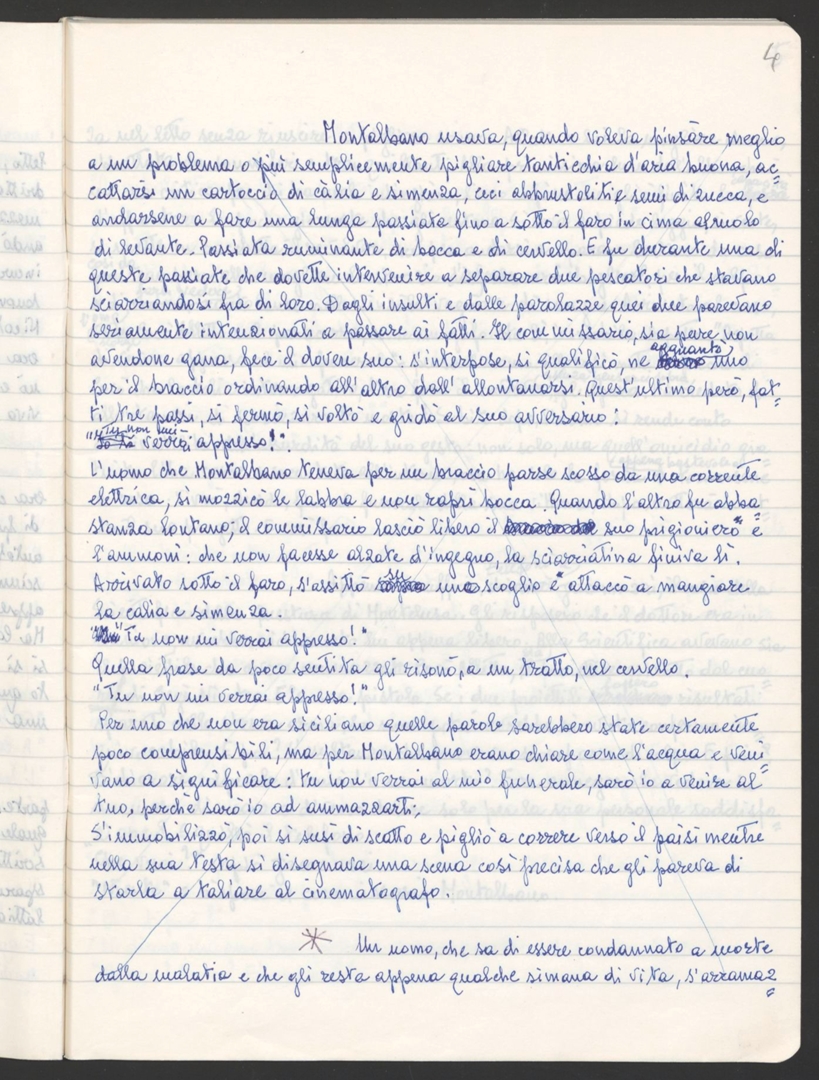 4
Montalbano usava, quando voleva pinsare meglio
a un problema o più semplicemente pigliare tanticchia d'aria buona, ac=
cattarsi un cartoccio di càlia e simenza, ceci abbrustoliti e semi di zucca, e
andarsene a fare una lunga passiata fino a sotto il faro in cima al molo
di levante. Passiata ruminante di bocca e di cervello. E fu durante una di
queste passiate che dovette intervenire a separare due pescatori che stavano
sciarriandosi fra di loro. Dagli insulti e dalle parolazze quei due parevano
seriamente intenzionati a passare ai fatti. Il commissario, sia pure non
avendone gana, fece il dovere suo: s'interpose, si qualificò, ne agguantò uno
per il braccio ordinando all'altro d'allontanarsi. Quest'ultimo però, fat=
ti tre passi, si fermò, si voltò e gridò al suo avversario:
"Tu non mi verrai appresso!".
L'uomo che Montalbano teneva per un braccio parse scosso da una corrente
elettrica, si mozzicò le labbra e non raprì bocca. Quando l'altro fu abba=
stanza lontano, il commissario lasciò libero il suo prigioniero e
l'ammonì: che non facesse alzate d'ingegno, la sciarriatina finiva lì.
Arrivato sotto il faro, s'assittò su uno scoglio e attaccò a mangiare
la càlia e simenza.
"Tu non mi verrai appresso!"
Quella frase da poco sentita gli risonò, a un tratto, nel cervello.
"Tu non mi verrai appresso!"
Per uno che non era siciliano quelle parole sarebbero state certamente
poco comprensibili, ma per Montalbano erano chiare come l'acqua e veni=
vano a significare: tu non verrai al mio funerale, sarò io a venire al
tuo, perché sarò io ad ammazzarti.
S'immobilizzò, poi si susì di scatto e pigliò a correre verso il paisi mentre
nella sua testa si disegnava una scena così precisa che gli pareva di
starla a taliare al cinematografo.
Un uomo, che sa di essere condannato a morte
dalla malatia e che gli resta appena qualche simana di vita, s'arramaz=